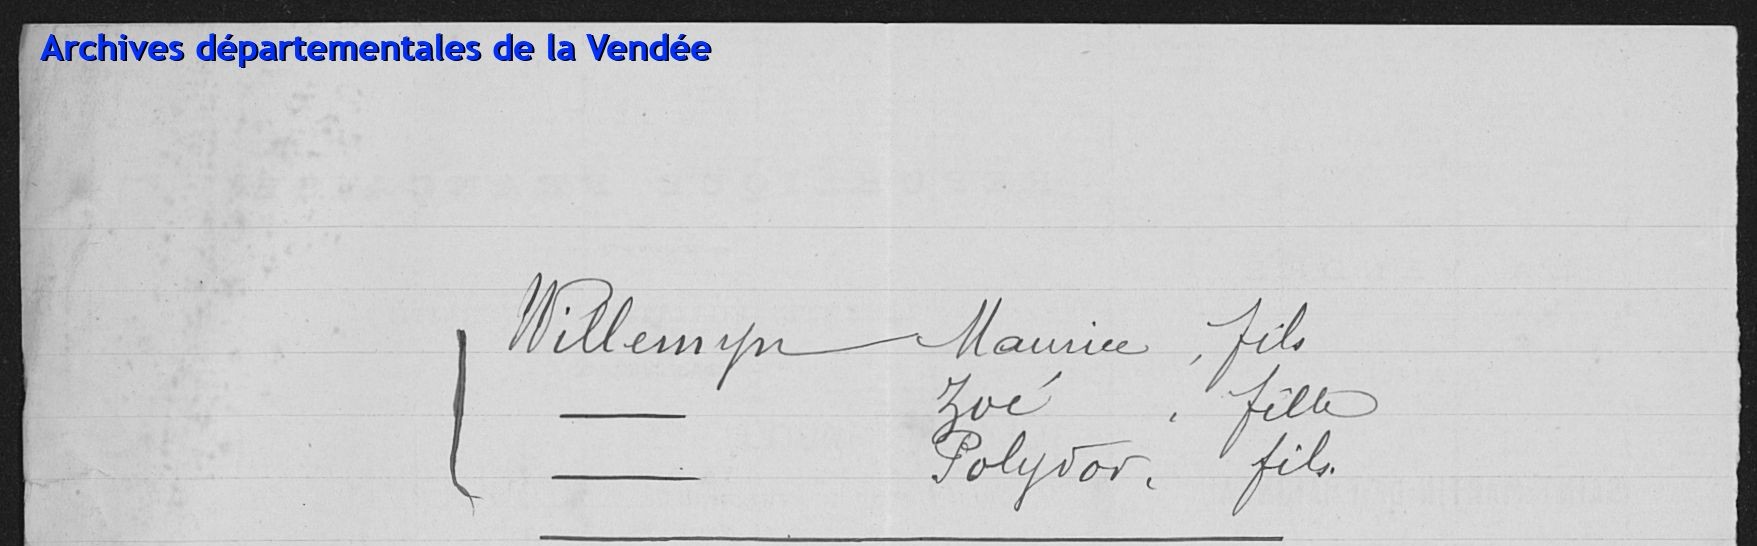 Archives départementales de la Vendée
Willemyn Maurice, fils
— Zoé, fille
— Polydor, fils.